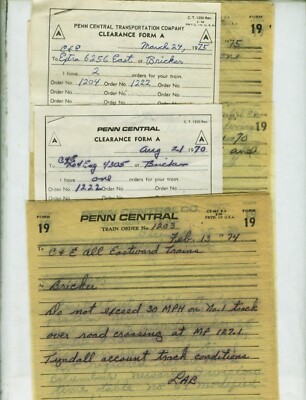 PENN CENTRAL TRANSPORTATION COMPANY
CLEARANCE FORM A
A
A
March 24, 1975
C&E
Extra 6256 East At Bricker
I have 2 orders for your train.
Order No. 1204 Order No. 1222 Order No.
Order No. Order No. Order No.
75
one
FORM
19
PENN CENTRAL
CLEARANCE FORM A
A
A
Aug 21 1970
C&E
Eng 4305 at Bricker
I have one orders for your train.
Order No. 1222 Order No. Order No.
70
FORM
19
FORM
19
PENN CENTRAL
TRAIN ORDER No. 1203
FORM
19
Feb. 13 '74
To C & E all Eastward Trains
At Bricker
Do not exceed 30 MPH on No.1 track
over road crossing at MP 127.1
Tyndall account track conditions
LAB